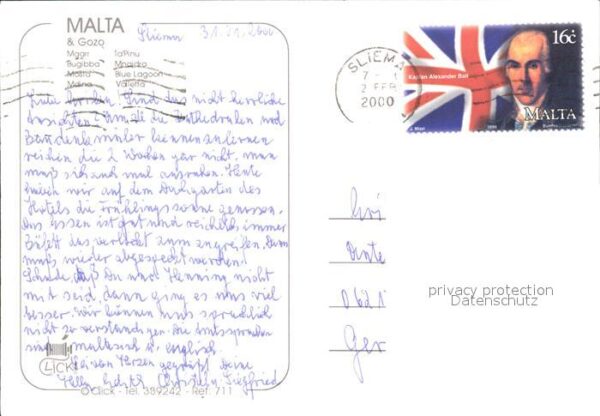 MALTA
& Gozo
Mgarr Ta'Pinu
Bugibba Mnajdra
Mosta Blue Lagoon
Mdina Valletta
Sliema 31.01.2000
Sind das nicht herrliche
Ansichten? Um all die Kathedralen und
Baudenkmäler kennenzulernen
reichen die 2 Wochen gar nicht, man
muß sich auch mal ausruhen. Heute
haben wir auf dem Dachgarten des
Hotels die Frühlingssonne genossen.
Das Essen ist gut und reichlich, immer
Büfett das verlockt zum zugreifen. Dann
muß wieder abgespeckt werden.
Schade, daß Du und Henning nicht
mit seid, dann ging es uns viel
besser. Wir können uns sprachlich
nicht so verständigen. Die Amtssprachen
sind maltesisch u. englisch.
Seid von Herzen gegrüßt Deine
Siegfried
CLICK
© Click - Tel. 389242 - Ref. 711
SLIEMA
7 -
2 FEB
2000
16c
Kaptan Alexander Ball
MALTA
0621
Ger
privacy protection
Datenschutz